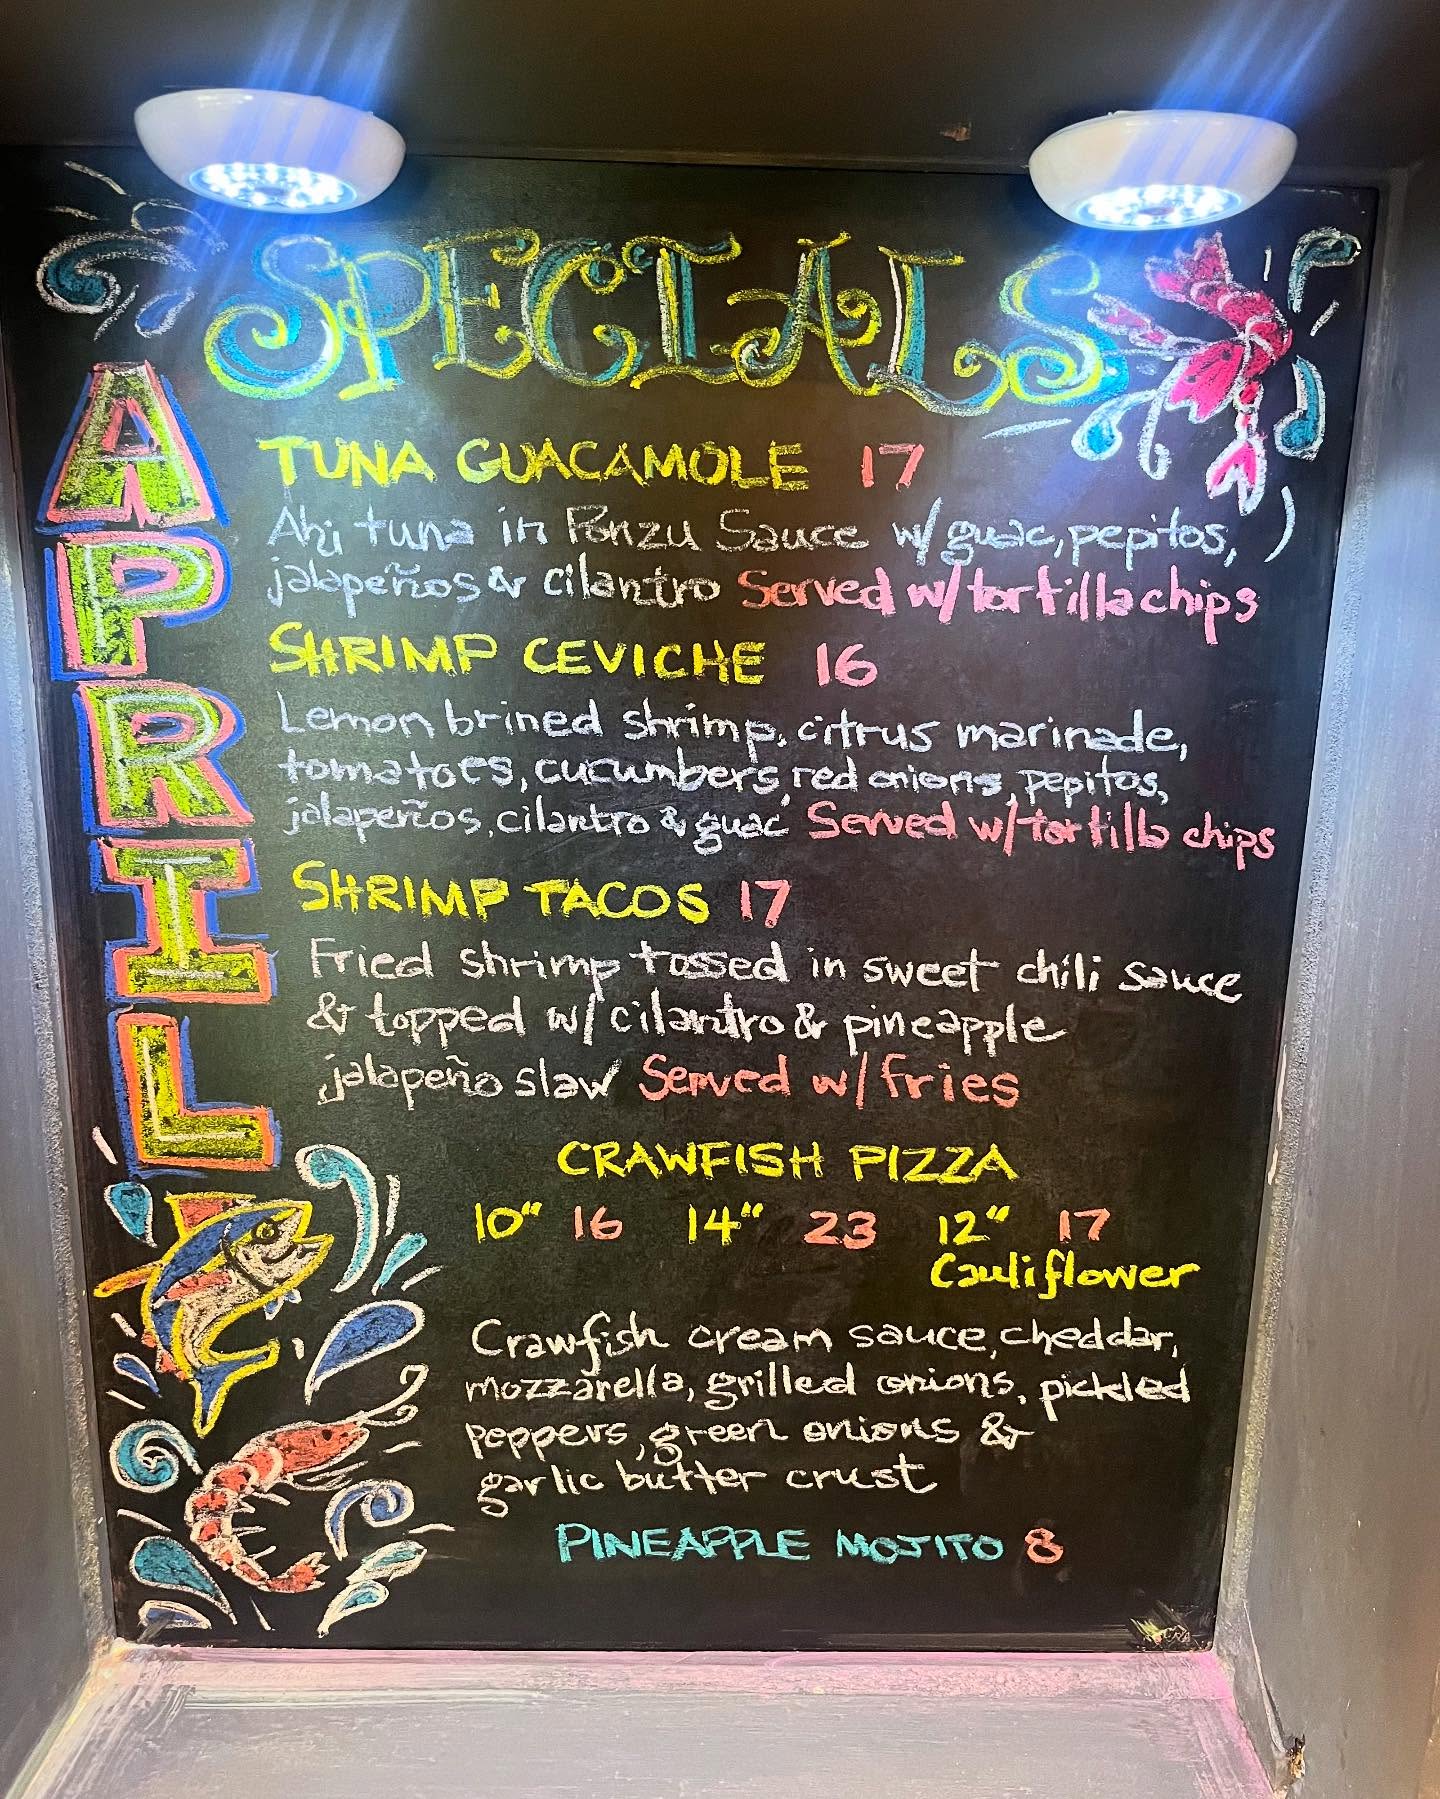 SPECIALS
APRIL
TUNA GUACAMOLE 17
Ahi tuna in Ponzu Sauce w/ guac, pepitos,
jalapeños & cilantro Served w/ tortilla chips
SHRIMP CEVICHE 16
Lemon brined shrimp, citrus marinade,
tomatoes, cucumbers, red onions, pepitos,
jalapeños, cilantro & guac Served w/ tortilla chips
SHRIMP TACOS 17
Fried shrimp tossed in sweet chili sauce
& topped w/ cilantro & pineapple
jalapeño slaw Served w/ fries
CRAWFISH PIZZA
10" 16 14" 23 12" 17
Cauliflower
Crawfish cream sauce, cheddar,
mozzarella, grilled onions, pickled
peppers, green onions &
garlic butter crust
PINEAPPLE MOJITO 8